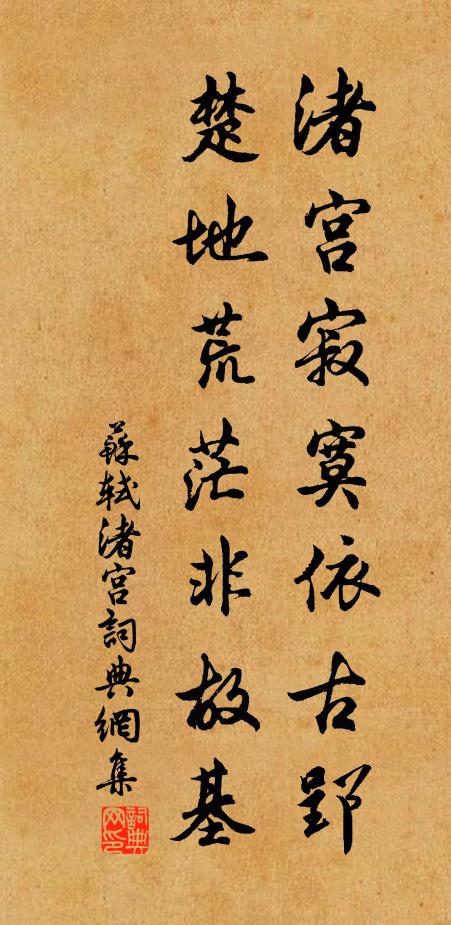 渚宫寂寞依古郢
楚地荒茫非故基
蘇軾渚宫詞典網集
詞典网印